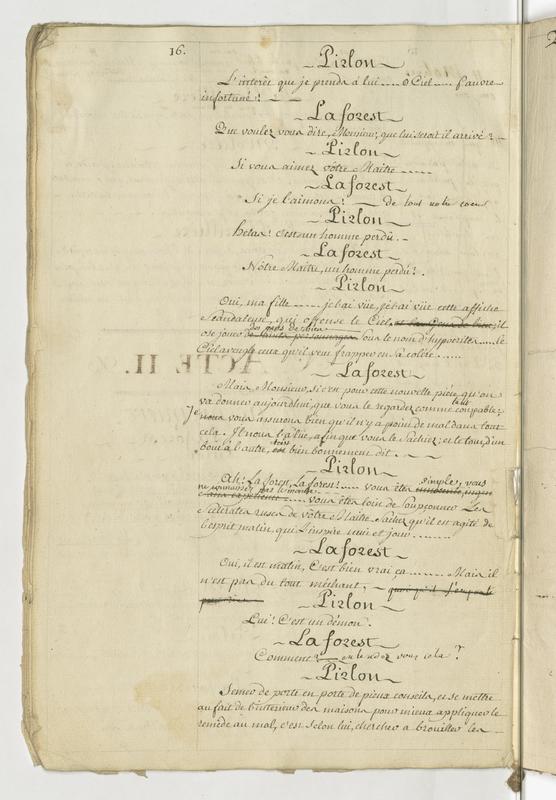 16.
Pirlon
L'interêt que je prends à lui .... ô Ciel .... pauvre
infortuné !
La forest
Que voulez vous dire, Monsieur, que lui seroit il arrivé ?
Pirlon
Si vous aimez vôtre Maître .....
La forest
Si je l'aimons ! de tout notre coeur
Pirlon
helas ! c'est un homme perdu.
La forest
Nôtre Maître, un homme perdu ?
Pirlon
Oui, ma fille ..... je l'ai vüe, je l'ai vüe cette affiche
scandaleuse, qui offense le Ciel, et les Gens de bien, il
des gens de bien
ose jouer de saints personnages sous le nom d'hypocrites .... le
Ciel aveugle ceux qu'il veut frapper en sa colère ......
La forest
Mais, Monsieur, si c'est pour cette nouvelle pièce qu'on
va donner aujourd'hui, que vous le regardez comme coupable ;
Je nous vous assurons bien qu'il n'y a point de mal dans tout
cela. Il nous l'a lüe, afin que vous le sachiez ; et le tout, d'un
bout à l'autre, est bien bonnement dit.
Pirlon
Ah ! La forest, La forest ! .... vous êtes simple, vous
ne connoissez pas le monde
sans expérience .... vous êtes loin de soupçonner les
scélérates ruses de vôtre Maître. Sachez qu'il est agité de
l'esprit malin, qui l'inspire nuit et jour ........
La forest
Oui, il est malin, C'est bien vrai ça ....... Mais il
n'est pas du tout méchant,
Pirlon
Lui ! C'est un démon.
La forest
Comment entendez vous cela ?
Pirlon
Semer de porte en porte de pieux conseils, et se mettre
au fait de l'intérieur des maisons pour mieux appliquer le
remède au mal, c'est selon lui, chercher à brouiller les
ACTE II.